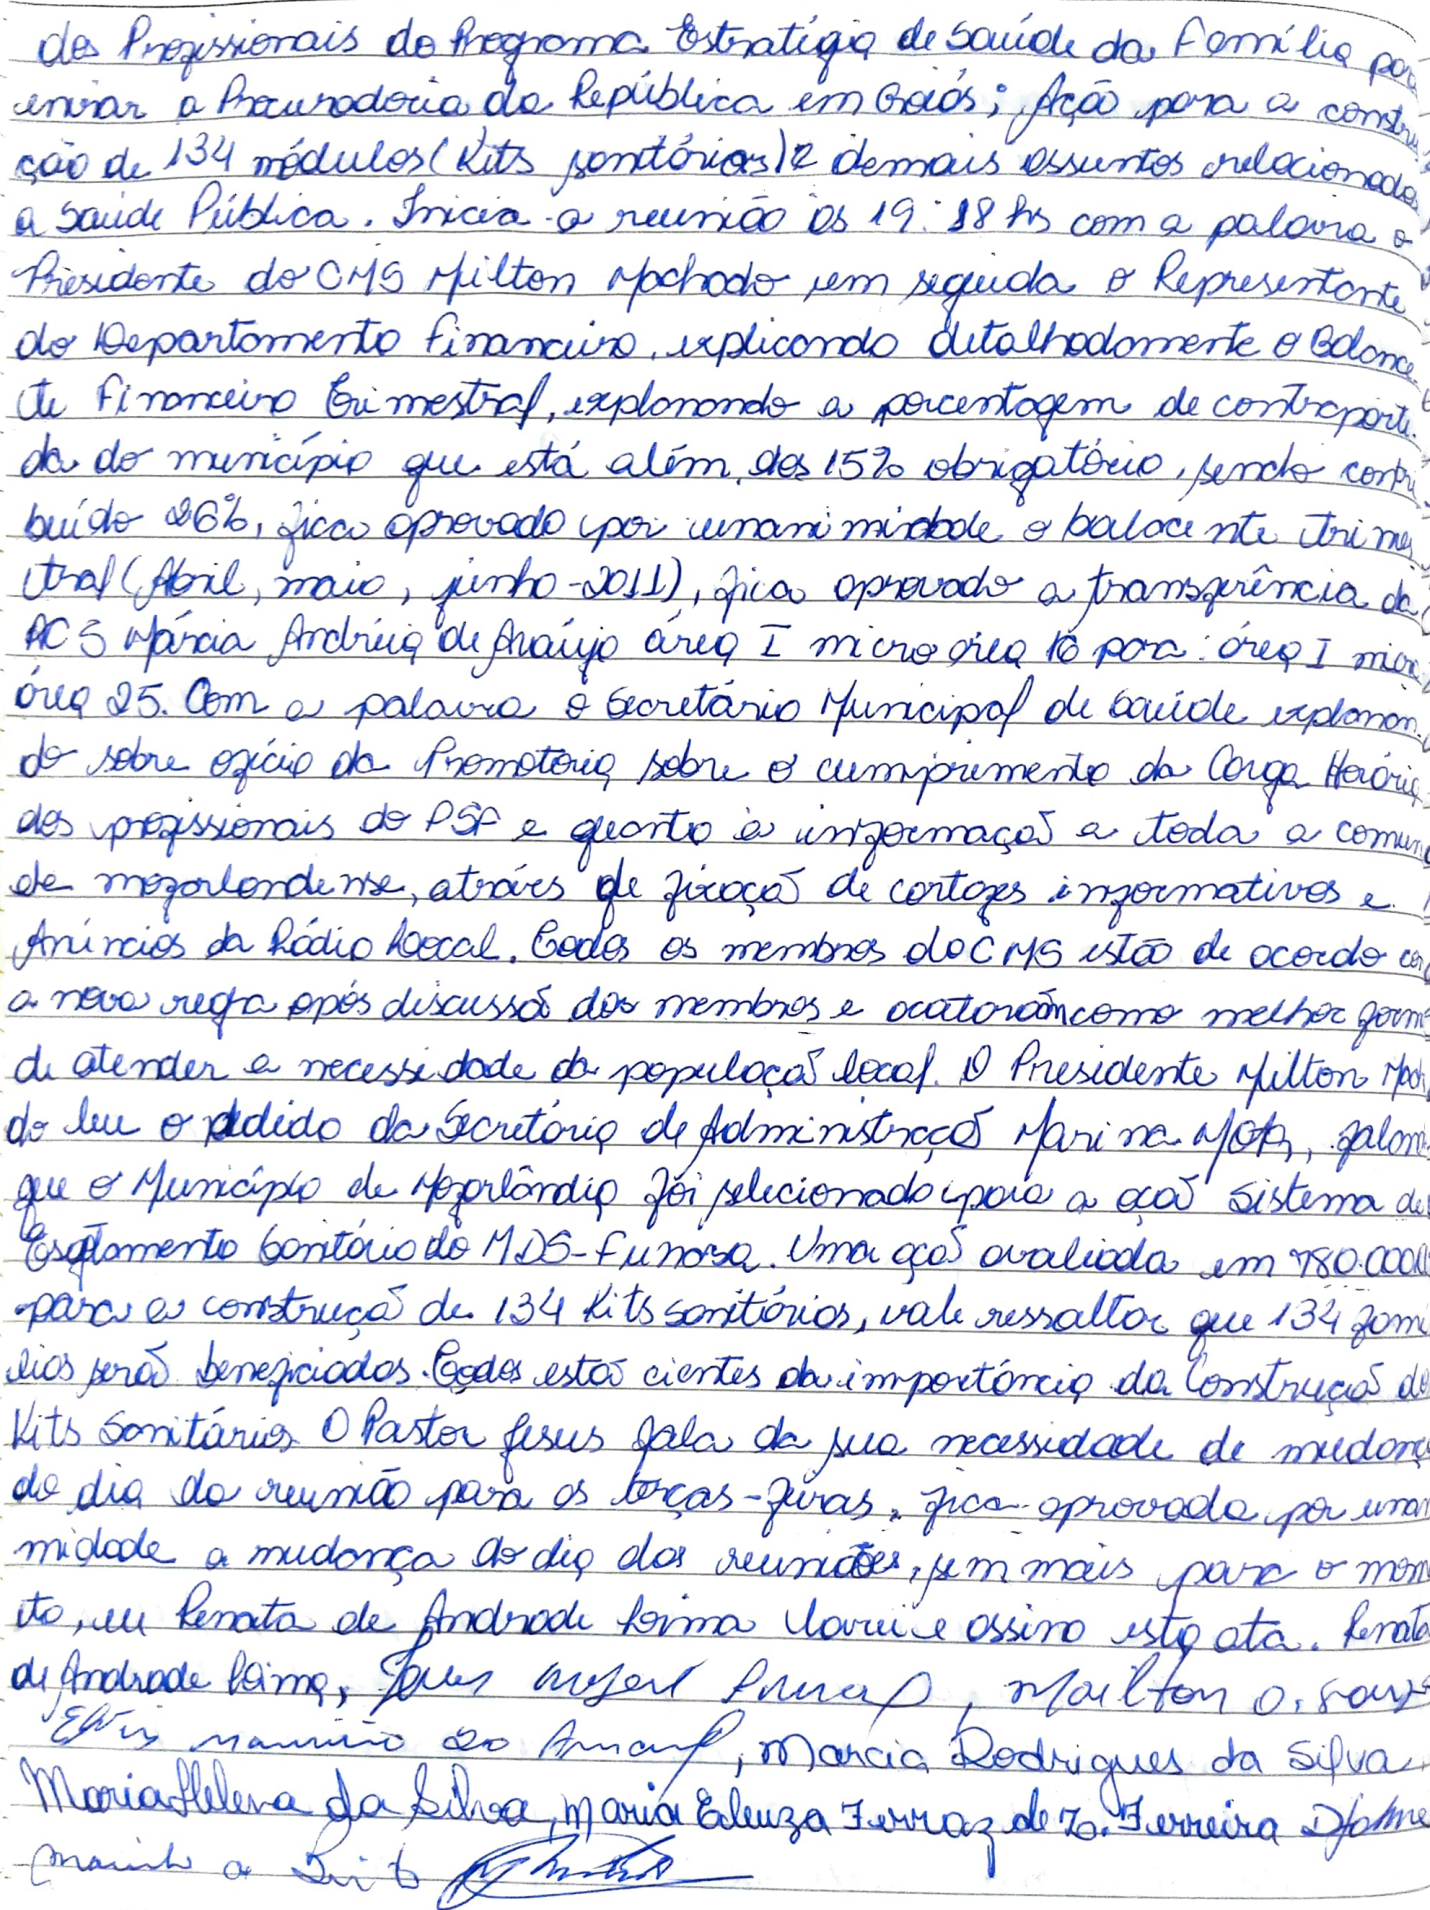 dos Profissionais do Programa Estratégia de Saúde da Família para
enviar a Procuradoria da República em Goiás; Ação para a constru
ção de 134 módulos (Kits sanitários) e demais assuntos relacionados
a Saúde Pública. Inicia-a reunião ás 19:18 hs com a palavra o
Presidente do CMS Milton Machado, em seguida o Representante
do Departamento financeiro, explicando detalhadamente o Balance
te Financeiro Trimestral, explanando a porcentagem de contraparti
da do município que está além, dos 15% obrigatório, sendo contri
buído 26%, fica aprovado por unanimidade o balacente trimes
tral (Abril, maio, junho-2011), fica aprovado a transferência da
ACS Márcia Andréia de Araújo área I micro área 16 para: área I micro
área 25. Com a palavra o Secretário Municipal de Saúde explanan-
do sobre ofício da Promotoria sobre o cumprimento da Carga Horária
dos profissionais do PSF e quanto a informação a toda a comuni
de mozarlandense, através de fixação de cartazes informativos e
Anúncios da Rádio Local. Todos os membros do CMS estão de acordo com
a nova regra após discussão dos membros e acataram como melhor forma
de atender a necessidade da população local. O Presidente Milton Macha
do leu o pedido da Secretária de Administração Marina Mota, falando
que o Município de Mozarlândia foi selecionado para a ação Sistema de
Esgotamento Sanitário do MDS-Funasa. Uma ação avaliada em 780.000,00
para a construção de 134 Kits Sanitários, vale ressaltar que 134 famí
lias serão beneficiadas. Todos estão cientes da importância da Construção dos
Kits Sanitários. O Pastor Jesus fala da sua necessidade de mudança
do dia da reunião para as terças-feiras, fica aprovada por unani
midade a mudança do dia das reuniões, sem mais para o momen
to, eu Renata de Andrade Lima lavrei e assino esta ata. Renata
de Andrade Lima, Mailton O. Souza
do Amaral, Marcia Rodrigues da Silva,
Maria Helena da Silva, Maria Eleuza Ferraz de Z. Ferreira